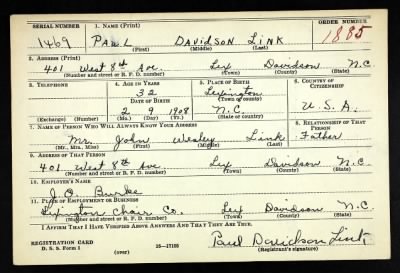 SERIAL NUMBER 1. NAME (Print) ORDER NUMBER
1469 PAUL DAVIDSON LINK 1885
(First) (Middle) (Last)
2. ADDRESS (Print)
401 West 8th Ave. Lex Davidson N.C.
(Number and street or R. F. D. number) (Town) (County) (State)
3. TELEPHONE 4. AGE IN YEARS 5. PLACE OF BIRTH 6. COUNTRY OF CITIZENSHIP
32 Lexington
DATE OF BIRTH (Town or county)
2 9 1908 N.C. U.S.A.
(Exchange) (Number) (Mo.) (Day) (Yr.) (State or country)
7. NAME OF PERSON WHO WILL ALWAYS KNOW YOUR ADDRESS 8. RELATIONSHIP OF THAT PERSON
Mr. John Wesley Link Father
(Mr., Mrs., Miss) (First) (Middle) (Last)
9. ADDRESS OF THAT PERSON
401 West 8th Ave. Lex Davidson N.C.
(Number and street or R. F. D. number) (Town) (County) (State)
10. EMPLOYER'S NAME
J. O. Burke
11. PLACE OF EMPLOYMENT OR BUSINESS
Lexington Chair Co. Lex Davidson N.C.
(Number and street or R. F. D. number) (Town) (County) (State)
I AFFIRM THAT I HAVE VERIFIED ABOVE ANSWERS AND THAT THEY ARE TRUE.
REGISTRATION CARD
D. S. S. Form 1 16—17105 Paul Davidson Link
(over) (Registrant's signature)